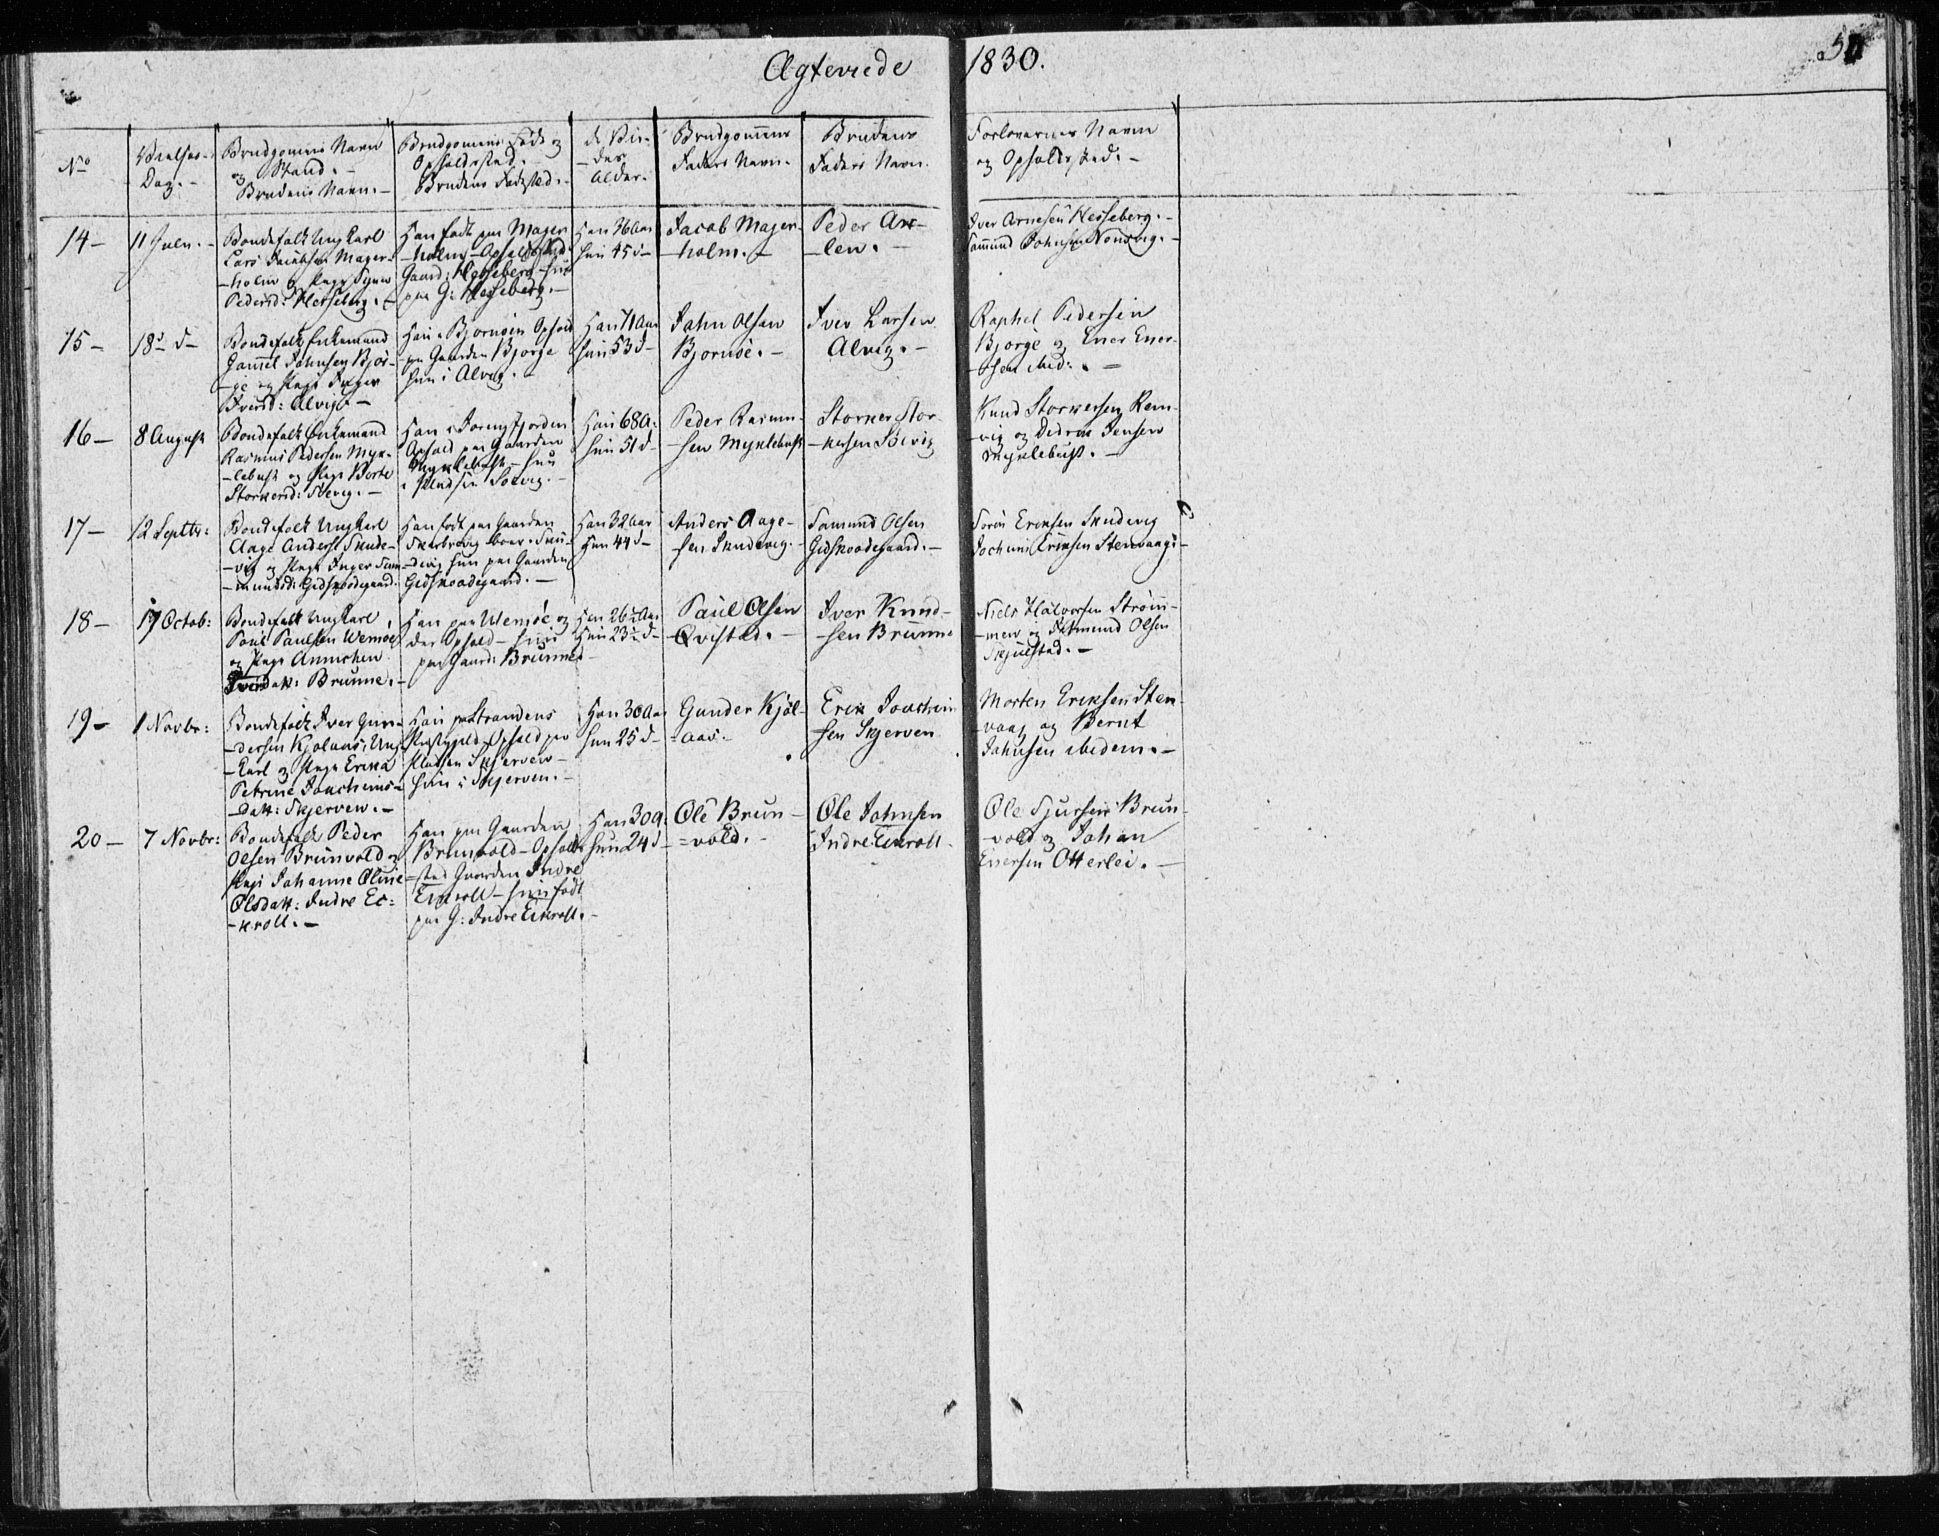 Ægteviede 1830.
50
No
Vielses-
Dag. -
Brudgomens Navn
og Stand. -
Brudens Navn. -
Brudgomens Føde og
Opholdssted. -
Brudens Fødested. -
de Vie-
-des
Alder. -
Brudgomens
Faders Navn. -
Brudens
Faders Navn.
Forlovernes Navn
og Opholdssted. -
14 -
11 Julii. -
Bondefolk Ungkarl
Lars Jacobsen Mager-
-holm og Pige Synev
Pedersd: Hesseberg. -
Han født paa Mager
-holm - Opholdssted
Gaard: Hesseberg - hun
paa G: Hesseberg. -
Han 36 Aar
hun 45 d -
Jacob Mager-
-holm. -
Peder Ar-
-len. -
Iver Arnesen Hesseberg. -
Samund Johnsen Nonsvig. -
15 -
18d d -
Bondefolk Enkemand
Gamel Johnsen Bjør-
-ge og Pige Inger
Iversd: Alvig. -
Han i Bjornøen Ophold
paa Gaarden Bjørge
hun i Alvig. -
Han 71 Aar
hun 53 d -
John Olsen
Bjornøe. -
Iver Larsen
Alvig. -
Raphel Pedersen
Bjørge og Ener Ener-
-sen ibid: . -
16 -
8 August
Bondefolk Enkemand
Rasmus Pedersen Myk-
-lebust og Pige Berte
Storkersd: Søevig. -
Han i Jorengfjorden
Ophold paa Gaarden
Myklebust - hun
i Pladsen Soevig. -
Han 68 A:
hun 51 d -
Peder Rasmu-
-sen Myklebust
Storker Stor-
-kersen Søevig
Knud Storkersen Rem-
-vig og Didrik Jensen
Myklebust. -
17 -
12 Septbr:
Bondefolk Ungkarl
Aage Anders: Skude-
-vig og Pige Inger Sam-
-mundsd: Gidskoødegaard.
Han født paa Gaarden
Skarbrevig boer i Sku-
-devig hun paa Gaarden
Gidskoødegaard. -
Han 32 Aar
hun 44 d -
Anders Aage-
-sen Skudevig. -
Samund Olsen
Gidskoødegaard. -
Soren Eriksen Skudevig
Jochum Eriksen Stenvaag: -
18 -
17 Octob:
Bondefolk Ungkarl
Poul Paulsen Wemøe
og Pige Annichen
Iversdatt: Brunne. -
Han paa Wemøe og
der Ophold - hun
paa Gaard: Brunnes -
Han 26½ Aar
hun 23½ d -
Paul Olsen
Qvistad. -
Iver Knud-
-sen Brunne
Niels Halvorsen Strøm-
-men og Samund Olsen
Skjulstad. -
19 -
1 Novbr:
Bondefolk Iver Gun-
-dersen Kjølaas, Ung-
-Karl og Pige Erika
Petrine Joachims-
-Datt: Skjerven. -
Han paa Strandens
Præstegield Ophold paa
Pladsen Skjerven -
hun i Skjerven. -
Han 30 Aar
hun 25 d -
Gunder Kjøl-
-aas. -
Erik Joachim-
-sen Skjerven
Morten Eriksen Sten-
-vaag og Bernt
Johnsen ibidem. -
20 -
7 Novbr:
Bondefolk Peder
Olsen Brunvold og
Pige Johanne Oline
Olsdatt: Indre Ec:
-kroll. -
Han paa Gaarden
Brunvold - Opholds-
-sted Gaarden Indre
Eikroll - hun født
paa G: Indre Eikroll. -
Han 30 A:
hun 24 d -
Ole Brun-
-vold. -
Ole Johnsen
Indre Eikroll -
Ole Sjursen Brun-
-vold og Johan
Enersen Otterlei. -